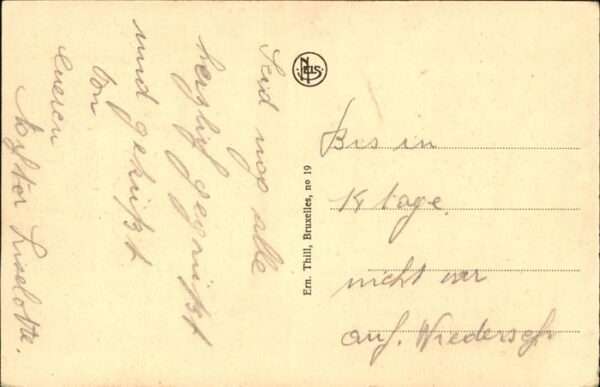 Seid noch alle
herzlich gegrüßt
und geküßt
von
eueren
Liselotte.
NELS
Ern. Thill, Bruxelles, no 19
Bis in
14 tage.
nicht war
auf. Wiedersehn